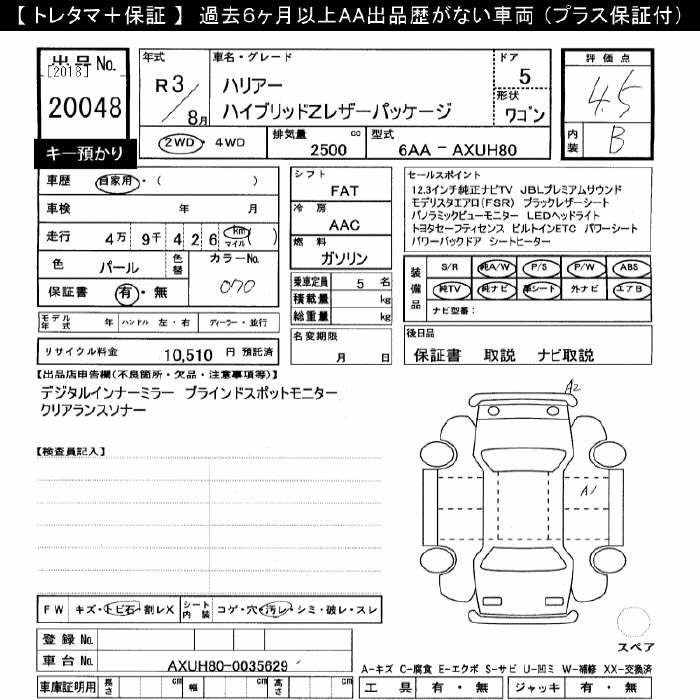 【 トレタマ＋保証 】 過去６ヶ月以上ＡＡ出品歴がない車両（プラス保証付）
出品No.
[2018]
20048
キー預かり
年式
R3/8月
車名・グレード
ハリアー
ハイブリッドZレザーパッケージ
ドア
5
形状
ワゴン
評価点
4.5
内装
B
2WD・4WD
排気量 cc
2500
型式
6AA－AXUH80
車歴 自家用・( )
車検 年 月
走行 4万 9千 4 2 6 km マイル ( )
色 パール 色替 カラーNo. 070
保証書 有・無
モデル年式 年 ハンドル 左・右 ディーラー・並行
リサイクル料金 10,510 円 預託済
シフト
FAT
冷房
AAC
燃料
ガソリン
乗車定員 5 名
積載量 kg
総重量 kg
名変期限
月 日
セールスポイント
12.3インチ純正ナビTV JBLプレミアムサウンド
モデリスタエアロ(FSR) ブラックレザーシート
パノラミックビューモニター LEDヘッドライト
トヨタセーフティセンス ビルトインETC パワーシート
パワーバックドア シートヒーター
装備品
S/R 純A/W P/S P/W ABS
純TV 純ナビ 革シート 外ナビ エアB
ナビ型番：
後日品
保証書 取説 ナビ取説
【出品店申告欄(不良箇所・欠品・注意事項等)】
デジタルインナーミラー ブラインドスポットモニター
クリアランスソナー
【検査員記入】
A2
A1
スペア
FW キズ・トビ石・割レX シート内装 コゲ・穴・汚レ・シミ・破レ・スレ
登録No.
車台No. AXUH80-0035629
車庫証明用 長さ cm 幅 cm 高さ cm
A－キズ C－腐食 E－エクボ S－サビ U－凹ミ W－補修 XX－交換済
工具 有・無 ジャッキ 有・無